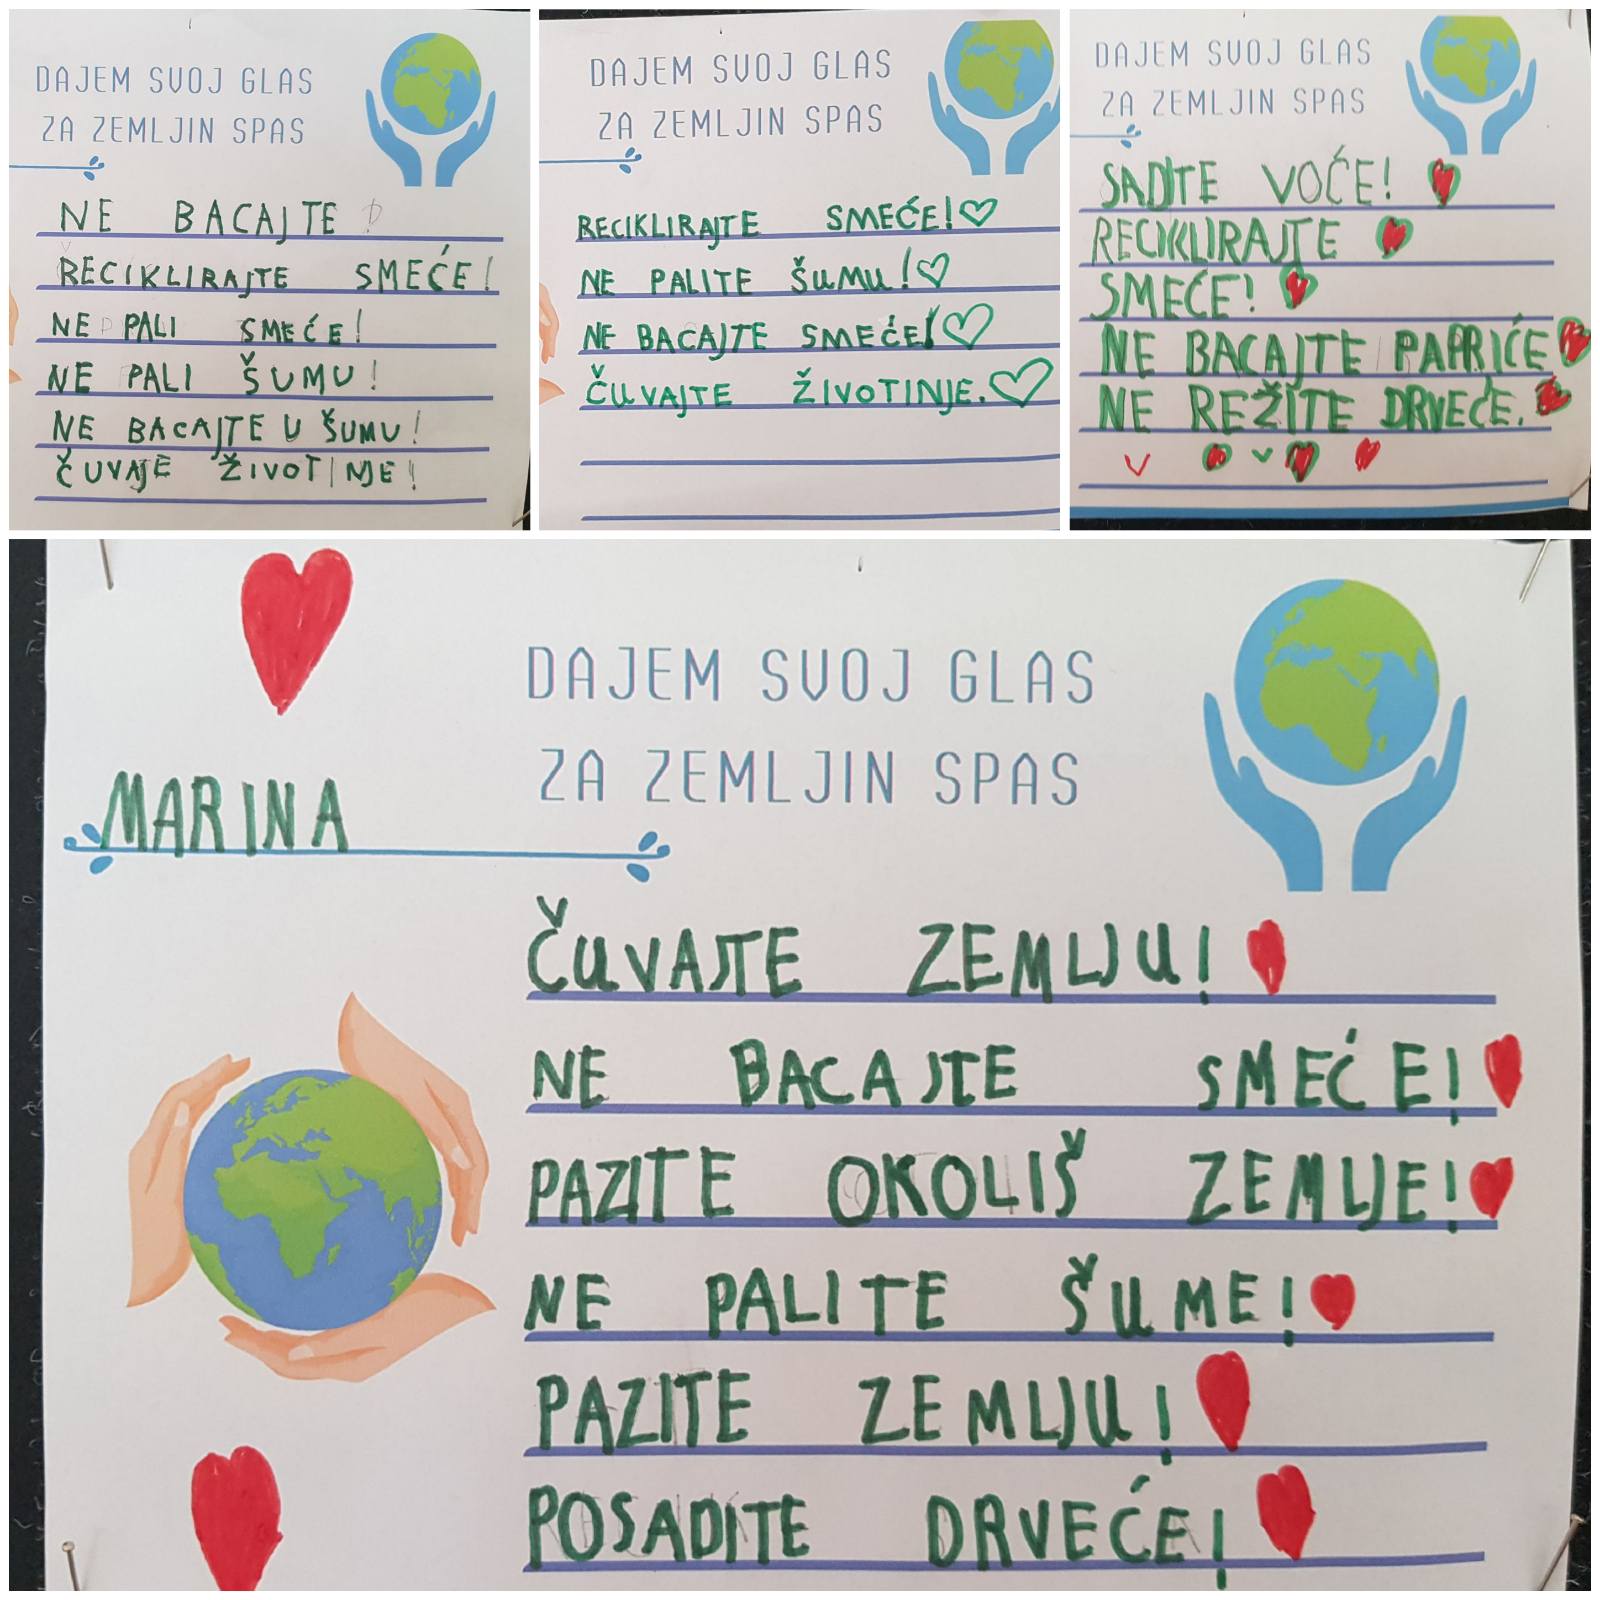 DAJEM SVOJ GLAS
ZA ZEMLJIN SPAS
NE BACAJTE
RECIKLIRAJTE SMEĆE!
NE PALI SMEĆE!
NE PALI ŠUMU!
NE BACAJTE U ŠUMU!
ČUVAJE ŽIVOTINJE!
DAJEM SVOJ GLAS
ZA ZEMLJIN SPAS
RECIKLIRAJTE SMEĆE!
NE PALITE ŠUMU!
NE BACAJTE SMEĆE!
ČUVAJTE ŽIVOTINJE.
DAJEM SVOJ GLAS
ZA ZEMLJIN SPAS
SADITE VOĆE!
RECIKLIRAJTE
SMEĆE!
NE BACAJTE PAPRIĆE
NE REŽITE DRVEĆE.
DAJEM SVOJ GLAS
ZA ZEMLJIN SPAS
MARINA
ČUVAJTE ZEMLJU!
NE BACAJTE SMEĆE!
PAZITE OKOLIŠ ZEMLJE!
NE PALITE ŠUME!
PAZITE ZEMLJU!
POSADITE DRVEĆE!